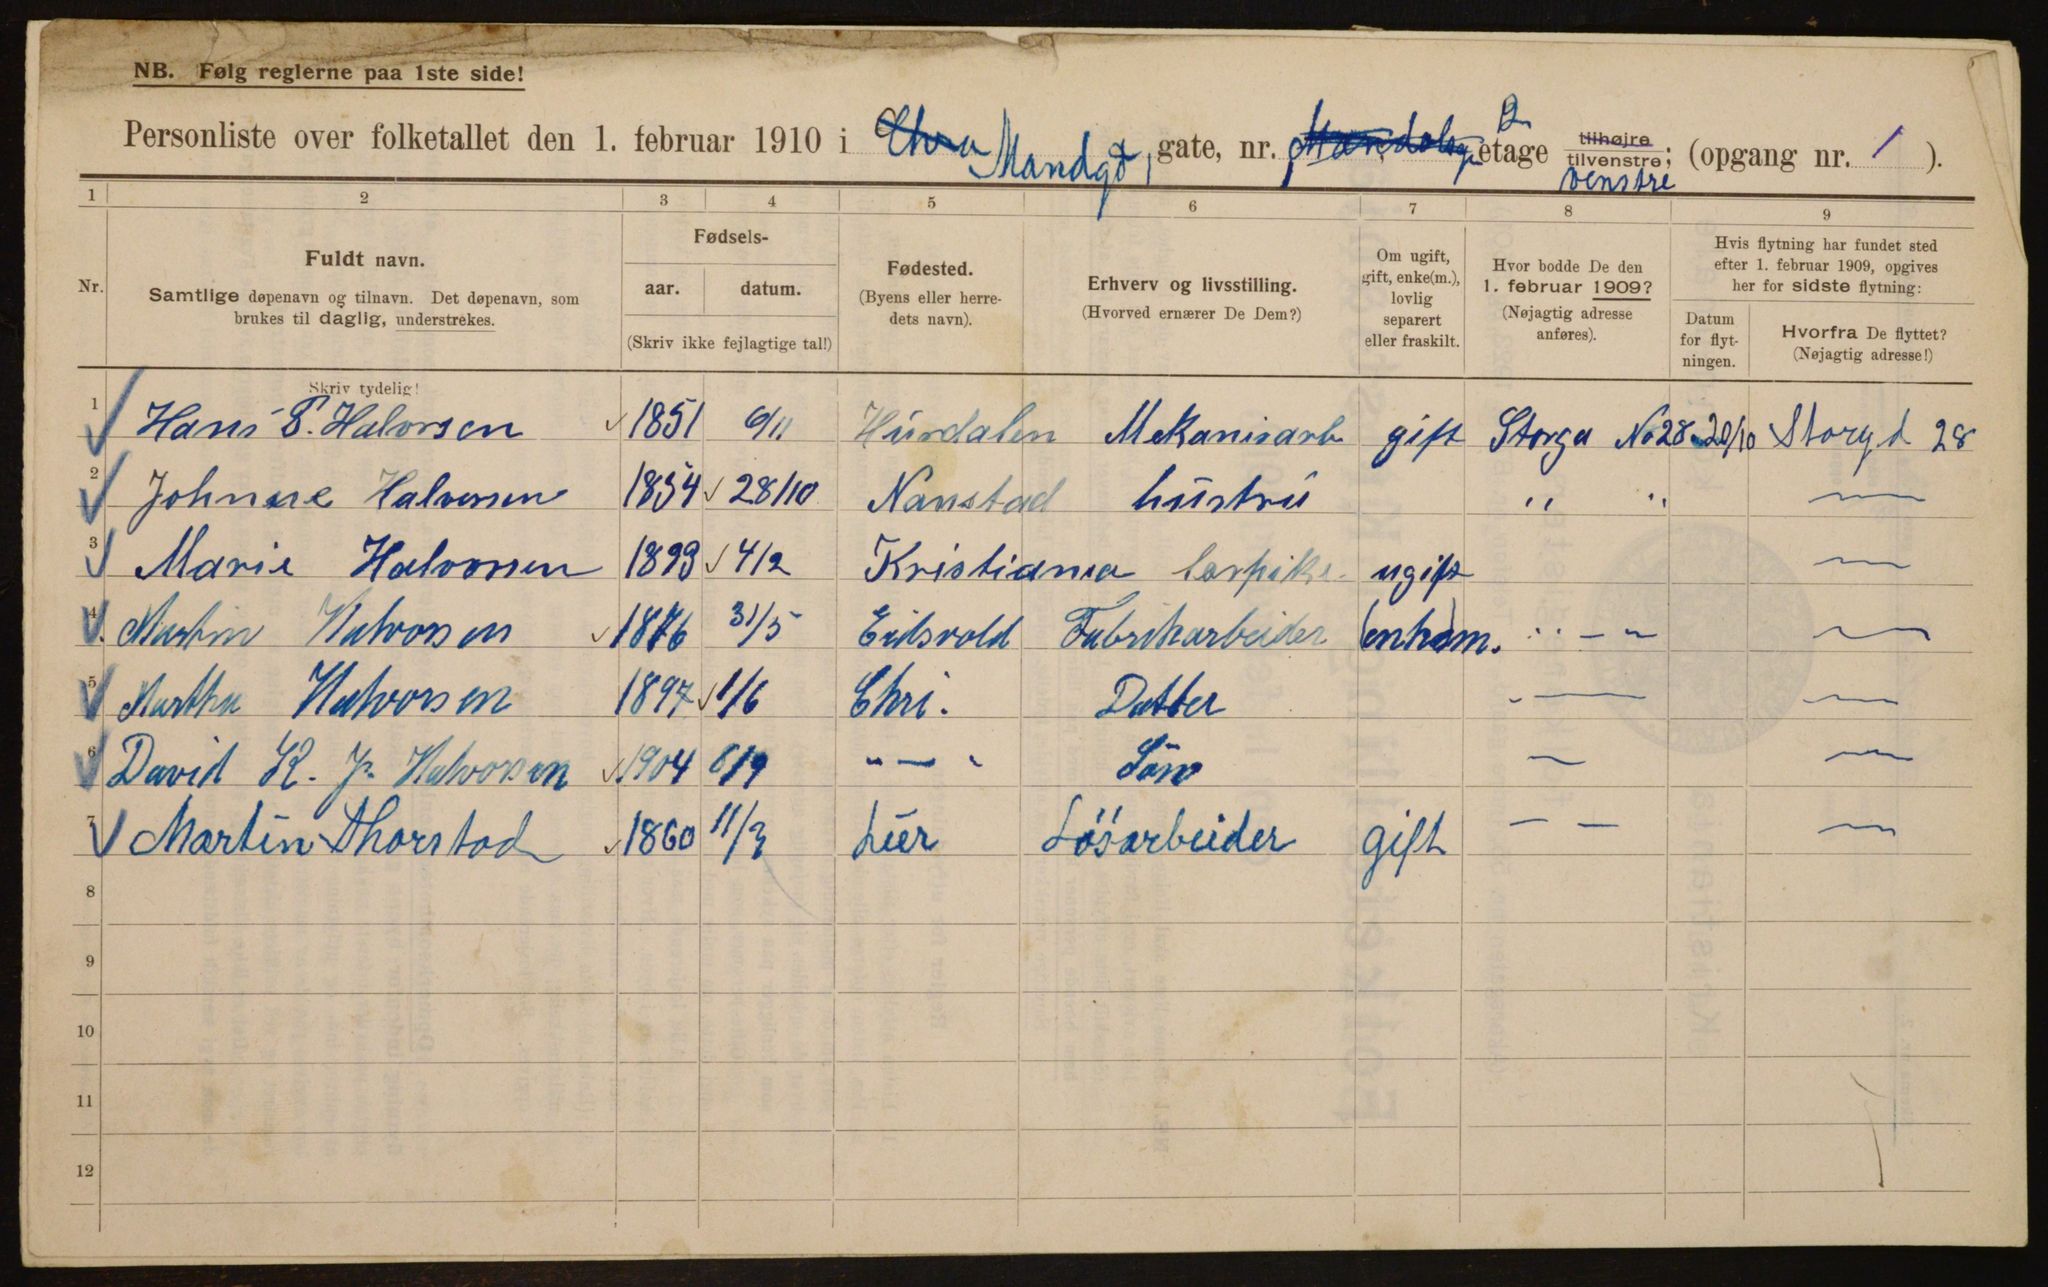 NB. Følg reglerne paa 1ste side!
Personliste over folketallet den 1. februar 1910 i Mandgt, gate, nr. 2 etage tilhøjre tilvenstre; venstre (opgang nr. 1 ).
1 2 3 4 5 6 7 8 9
Nr.
Fuldt navn.
Samtlige døpenavn og tilnavn. Det døpenavn, som
brukes til daglig, understrekes.
Fødsels-
aar. datum.
(Skriv ikke fejlagtige tal!)
Fødested.
(Byens eller herre-
dets navn).
Erhverv og livsstilling.
(Hvorved ernærer De Dem?)
Om ugift,
gift, enke(m.),
lovlig
separert
eller fraskilt.
Hvor bodde De den
1. februar 1909?
(Nøjagtig adresse
anføres).
Hvis flytning har fundet sted
efter 1. februar 1909, opgives
her for sidste flytning:
Datum
for flyt-
ningen.
Hvorfra De flyttet?
(Nøjagtig adresse!)
Skriv tydelig!
1 Hans P. Halvorsen 1851 6/11 Hurdalen Mekanisarb gift Storga No 28 20/10 Storgd 28
2 Johnne Halvorsen 1854 28/10 Nanstad hustru " " —
3 Marie Halvorsen 1893 4/2 Kristiania ugift —
4 Martin Halvorsen 1876 31/5 Eidsvold Fabrikarbeider (enkem. " — " —
5 Martha Halvorsen 1897 1/6 Chri. Datter " — —
6 David K. J. Halvorsen 1904 6/9 " — " Søn — —
7 Martin Thorstad 1860 11/3 Lier Løsarbeider gift — — —
8
9
10
11
12